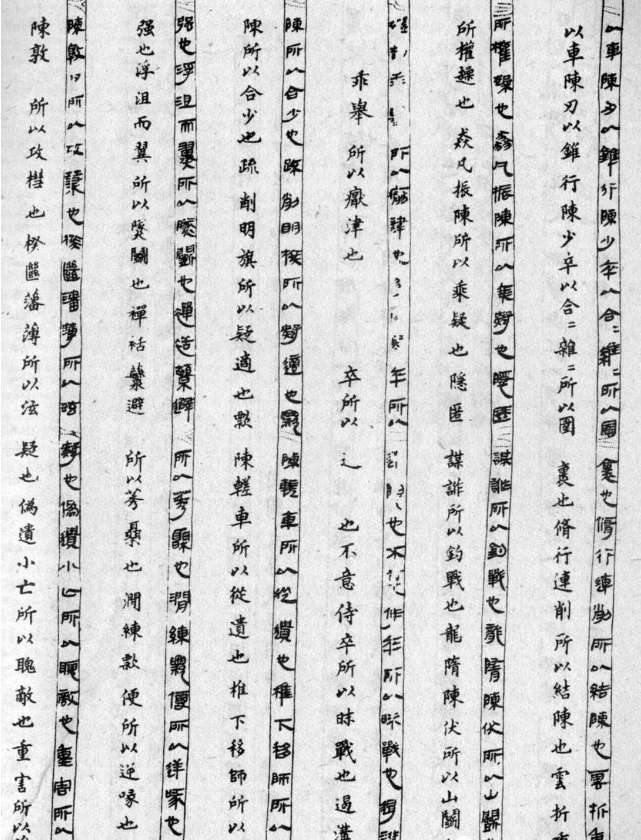 以車陳刃以錐行陳少卒以合二雜二所以圉裏也脩行連削所以結陳也雲折重
以車陳刃以錐行陳少卒以合二雜二所以圉 裏也脩行連削所以結陳也雲折
所權趮也猋凡振陳所以乘疑也隱匿謀詐所以釣戰也龍隋陳伏所以山鬬
所權趮也猋凡振陳所以乘疑也隱匿 謀詐所以釣戰也龍隋陳伏所以山鬬
所以 津也 卒所以 也不意侍卒所以昧戰也遏溝
乖舉 所以 津也 卒所以 也不意侍卒所以昧戰也遏溝
陳所以合少也疏削明旗所以疑適也剽陳車所以從遺也椎下移師所以
陳所以合少也疏削明旗所以疑適也剽 陳車所以從遺也椎下移師所以
强也浮沮而翼所以燧鬬也禪括蘩避所以莠桑也澗練剽便所以逆喙也
强也浮沮而翼所以燧鬬也禪括蘩避 所以莠桑也澗練剽便所以逆喙也
陳敦 所以攻槥也揆藩薄所以 疑也偽遺小亡所以 敵也重害所以
陳敦 所以攻槥也揆藩薄所以 疑也偽遺小亡所以 敵也重害所以